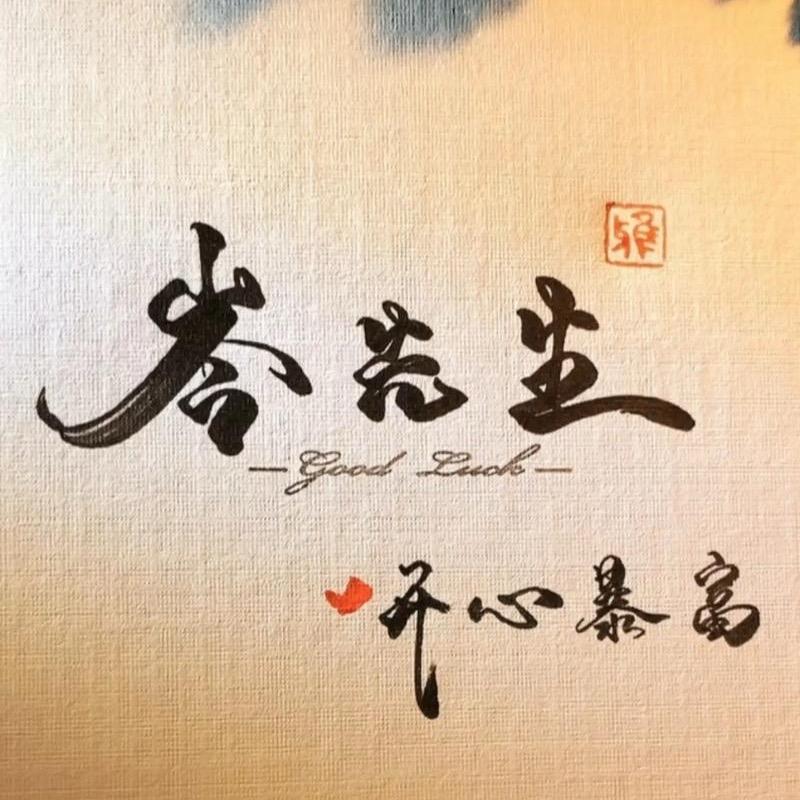 雅
岑先生
—Good Luck—
开心暴富